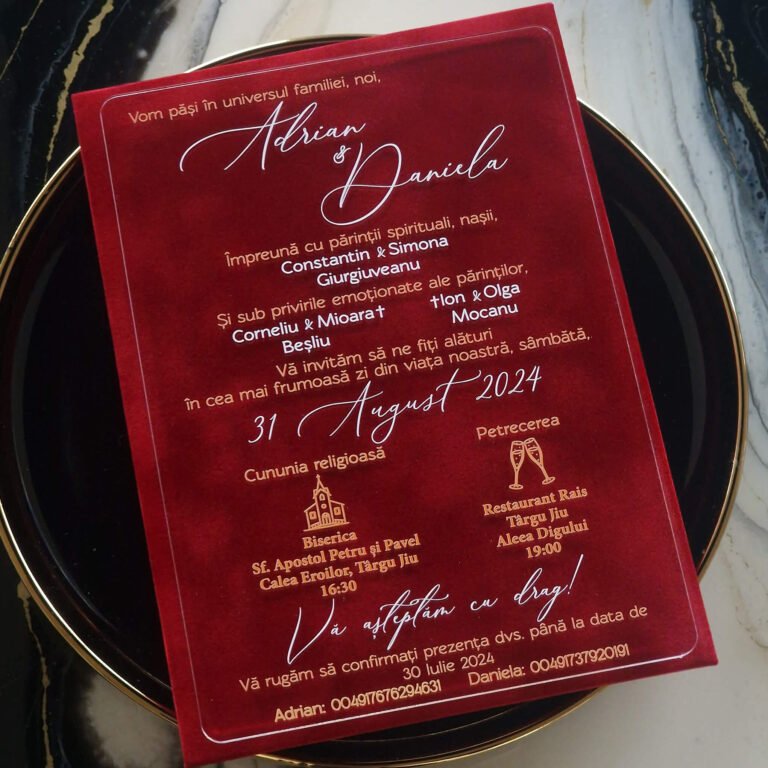 Vom păși în universul familiei, noi,
Adrian
&
Daniela
Împreună cu părinții spirituali, nașii,
Constantin & Simona
Giurgiuveanu
Și sub privirile emoționate ale părinților,
Corneliu & Mioara† †Ion & Olga
Beșliu Mocanu
Vă invităm să ne fiți alături
în cea mai frumoasă zi din viața noastră, sâmbătă,
31 August 2024
Cununia religioasă
Biserica
Sf. Apostol Petru și Pavel
Calea Eroilor, Târgu Jiu
16:30
Petrecerea
Restaurant Rais
Târgu Jiu
Aleea Digului
19:00
Vă așteptăm cu drag!
Vă rugăm să confirmați prezența dvs. până la data de
30 Iulie 2024
Adrian: 004917676294631 Daniela: 00491737920191